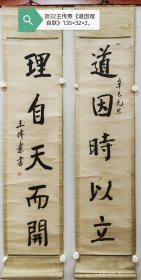 顶32王传焘《道因理
自联》135×32×2。
道因時以立
辛巳元旦
理自天而開
王傳燾書